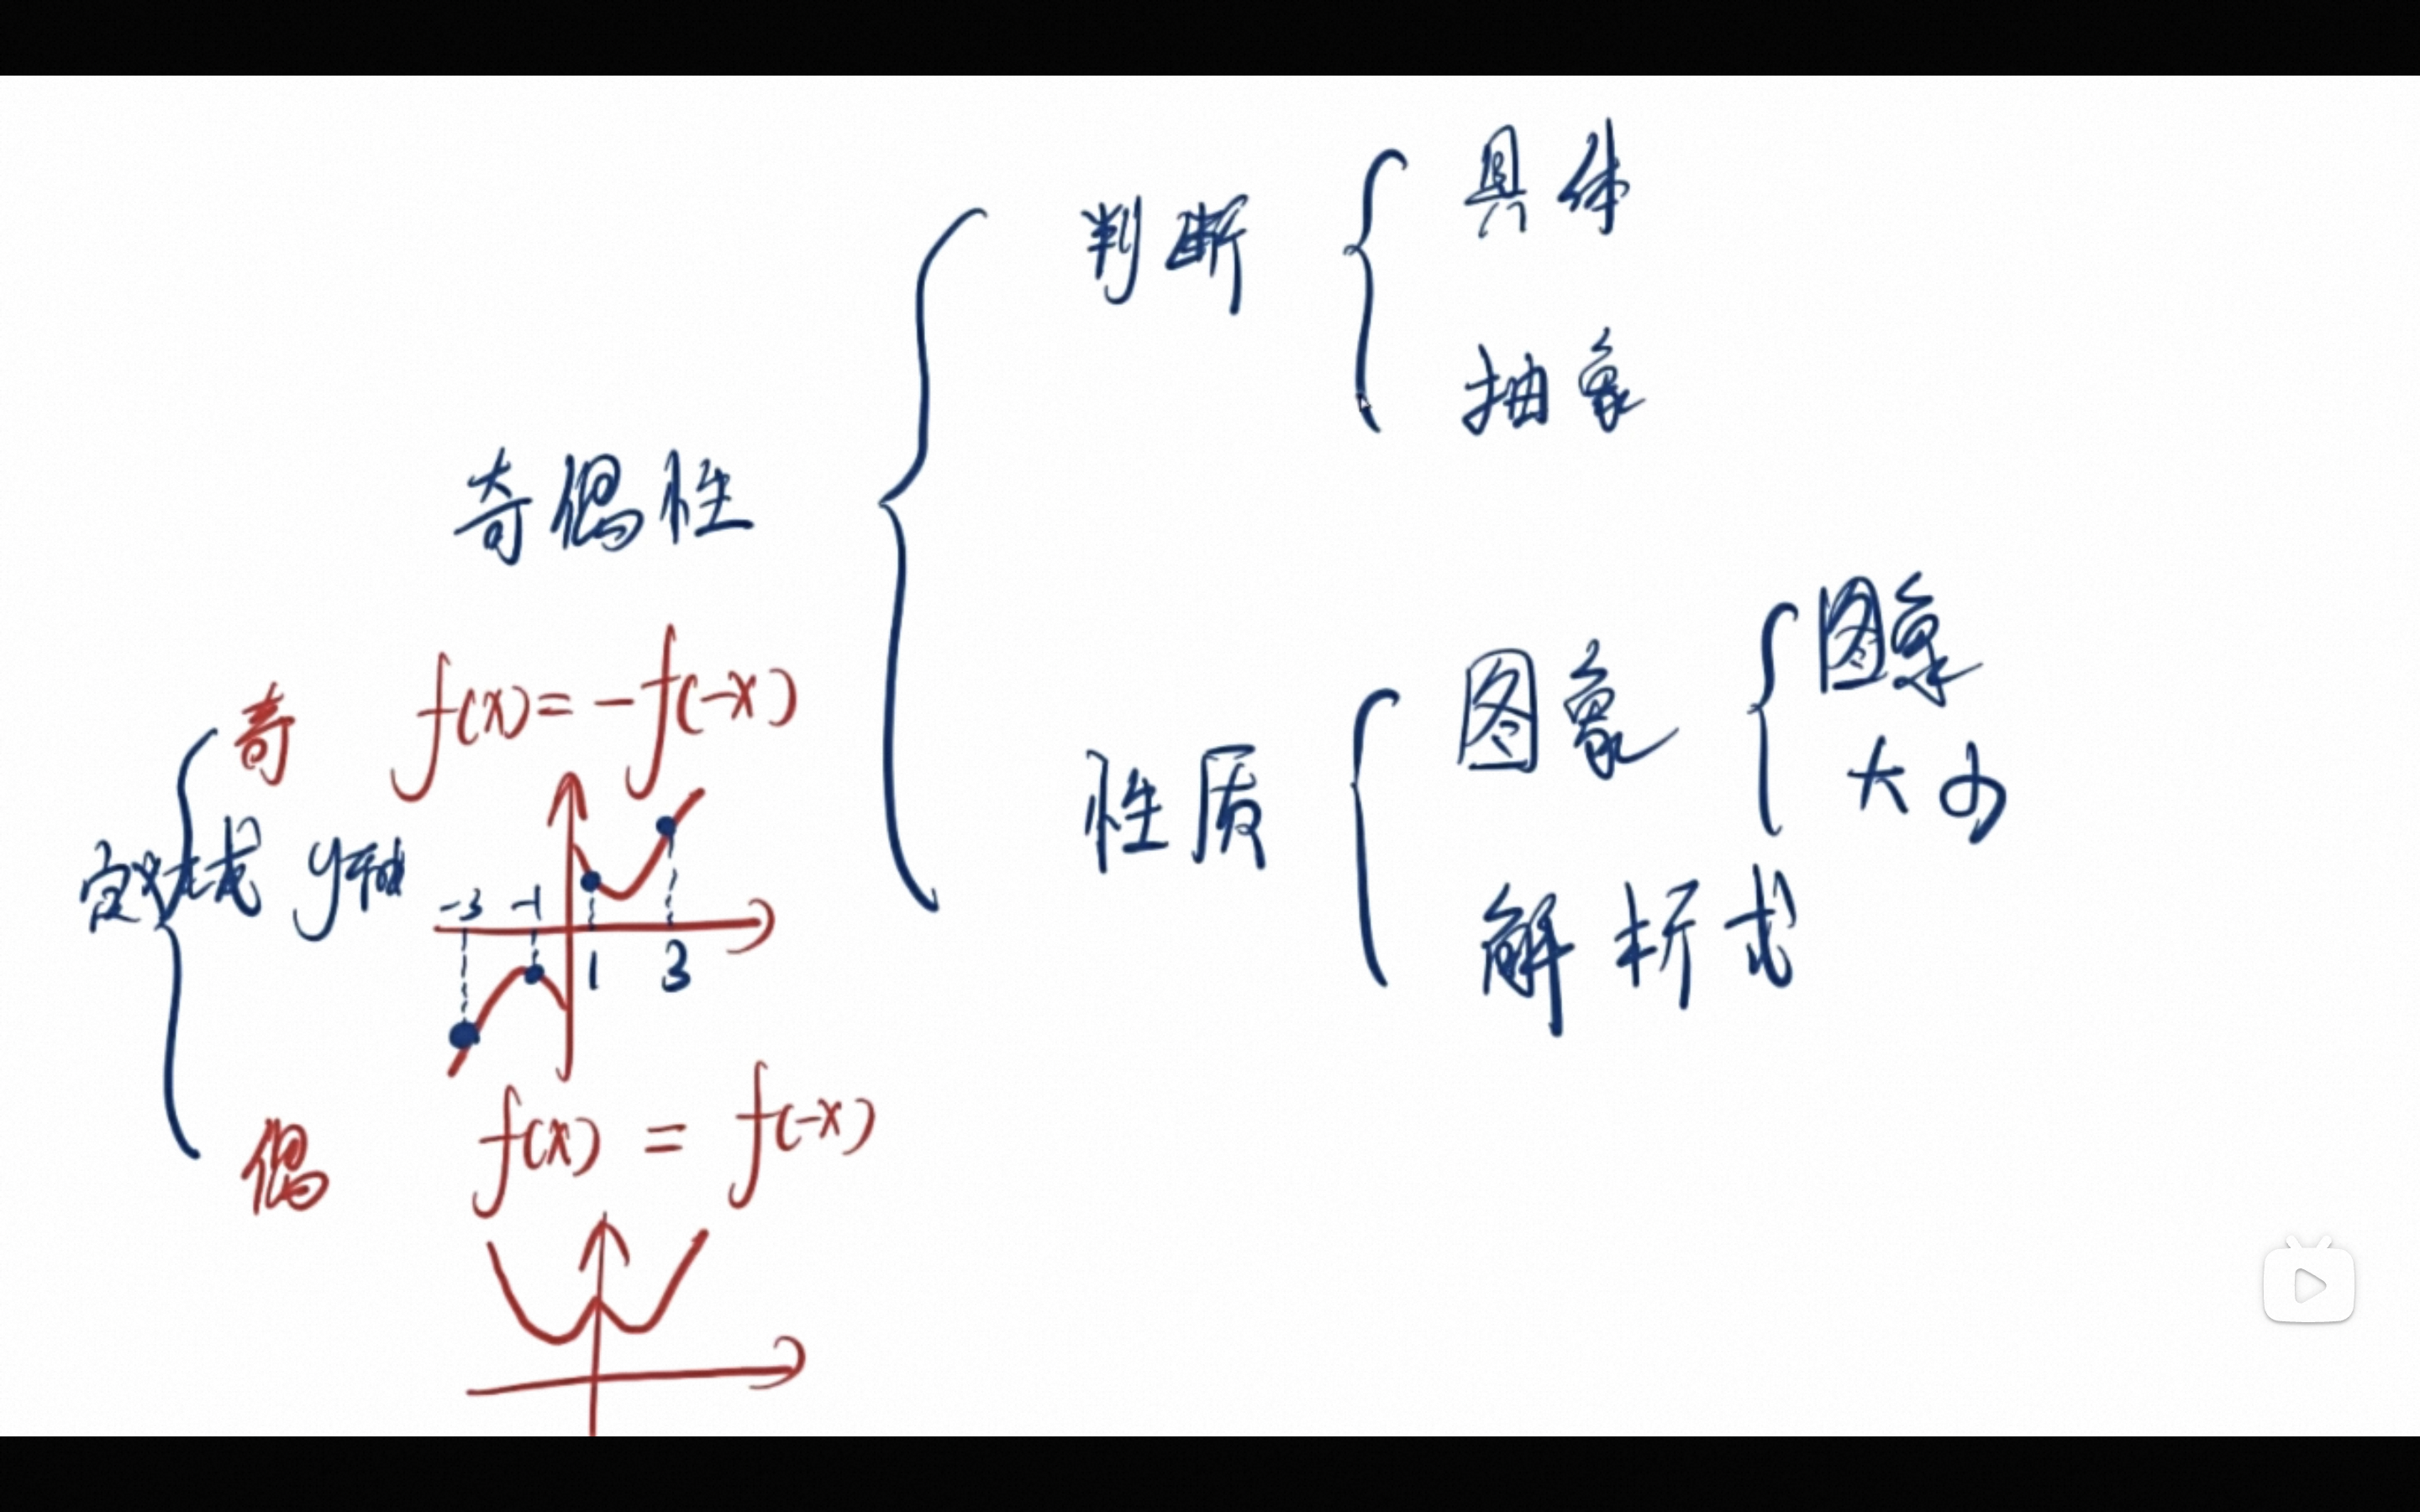 奇偶性
判断
具体
抽象
性质
图象
图象
大小
解析式
定义域 y轴
奇 f(x) = -f(-x)
-3 -1
1 3
偶 f(x) = f(-x)